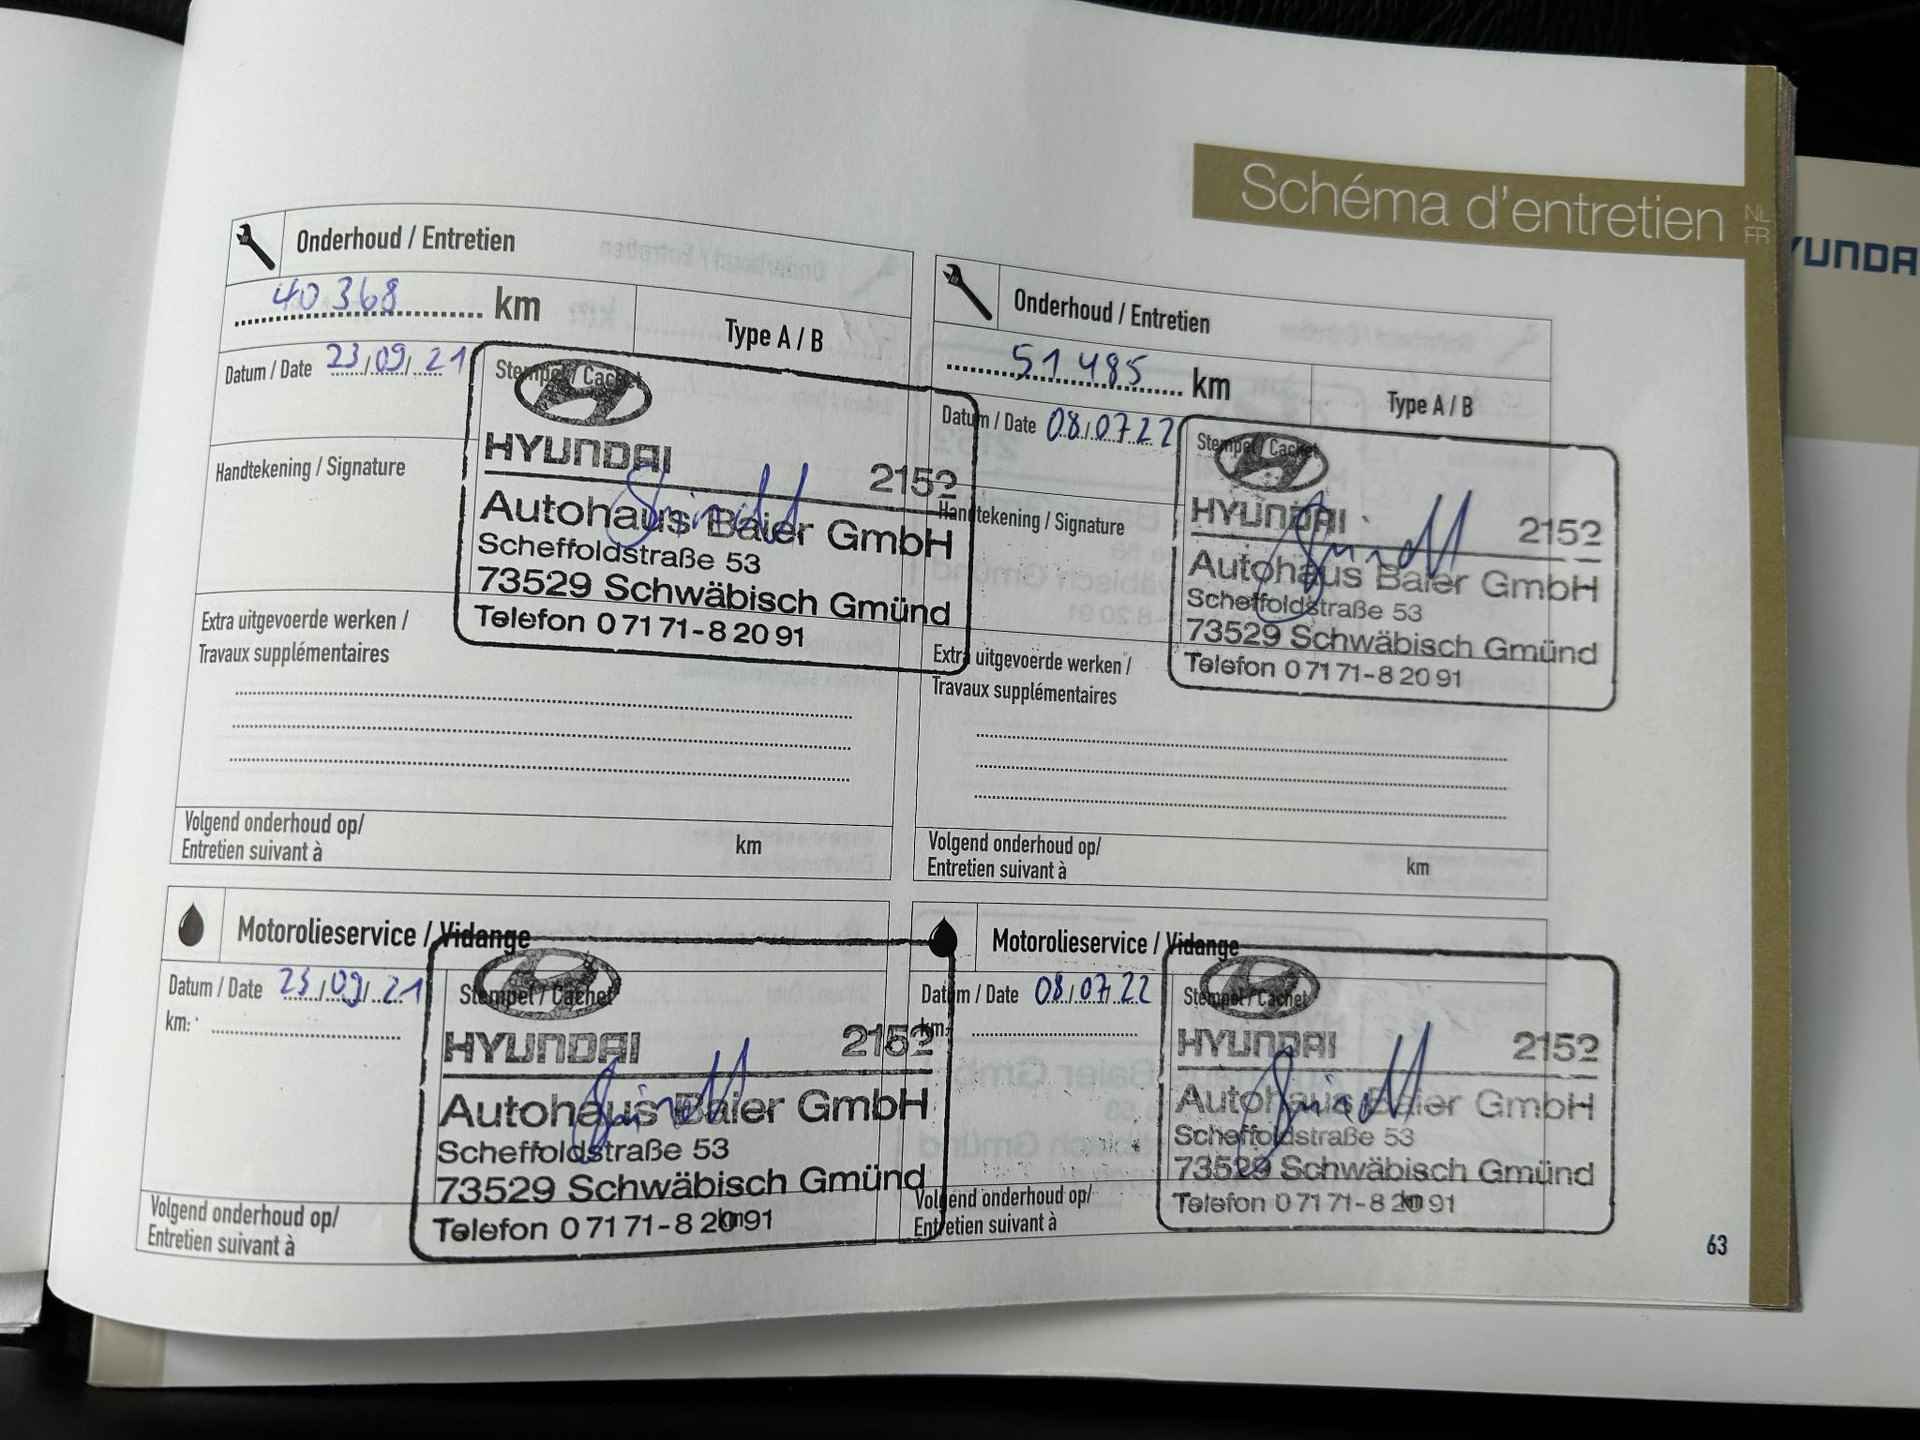 Schéma d'entretien
NL
FR
YUNDA
Onderhoud / Entretien
40 368 km
Type A / B
Datum / Date 23/09/21
Stempel / Cachet
HYUNDAI 2152
Handtekening / Signature
Autohaus Baier GmbH
Scheffoldstraße 53
73529 Schwäbisch Gmünd
Telefon 0 71 71-8 20 91
Extra uitgevoerde werken /
Travaux supplémentaires
Volgend onderhoud op/
Entretien suivant à km
Onderhoud / Entretien
51 485 km
Type A / B
Datum / Date 08/07/22
Stempel / Cachet
HYUNDAI 2152
Handtekening / Signature
Autohaus Baier GmbH
Scheffoldstraße 53
73529 Schwäbisch Gmünd
Telefon 0 71 71-8 20 91
Extra uitgevoerde werken /
Travaux supplémentaires
Volgend onderhoud op/
Entretien suivant à km
Motorolieservice / Vidange
Datum / Date 23/09/21
Stempel / Cachet
km:
HYUNDAI 2152
Autohaus Baier GmbH
Scheffoldstraße 53
73529 Schwäbisch Gmünd
Telefon 0 71 71-8 20 91
Volgend onderhoud op/
Entretien suivant à km
Motorolieservice / Vidange
Datum / Date 08/07/22
Stempel / Cachet
km:
HYUNDAI 2152
Autohaus Baier GmbH
Scheffoldstraße 53
73529 Schwäbisch Gmünd
Telefon 0 71 71-8 20 91
Volgend onderhoud op/
Entretien suivant à km
63